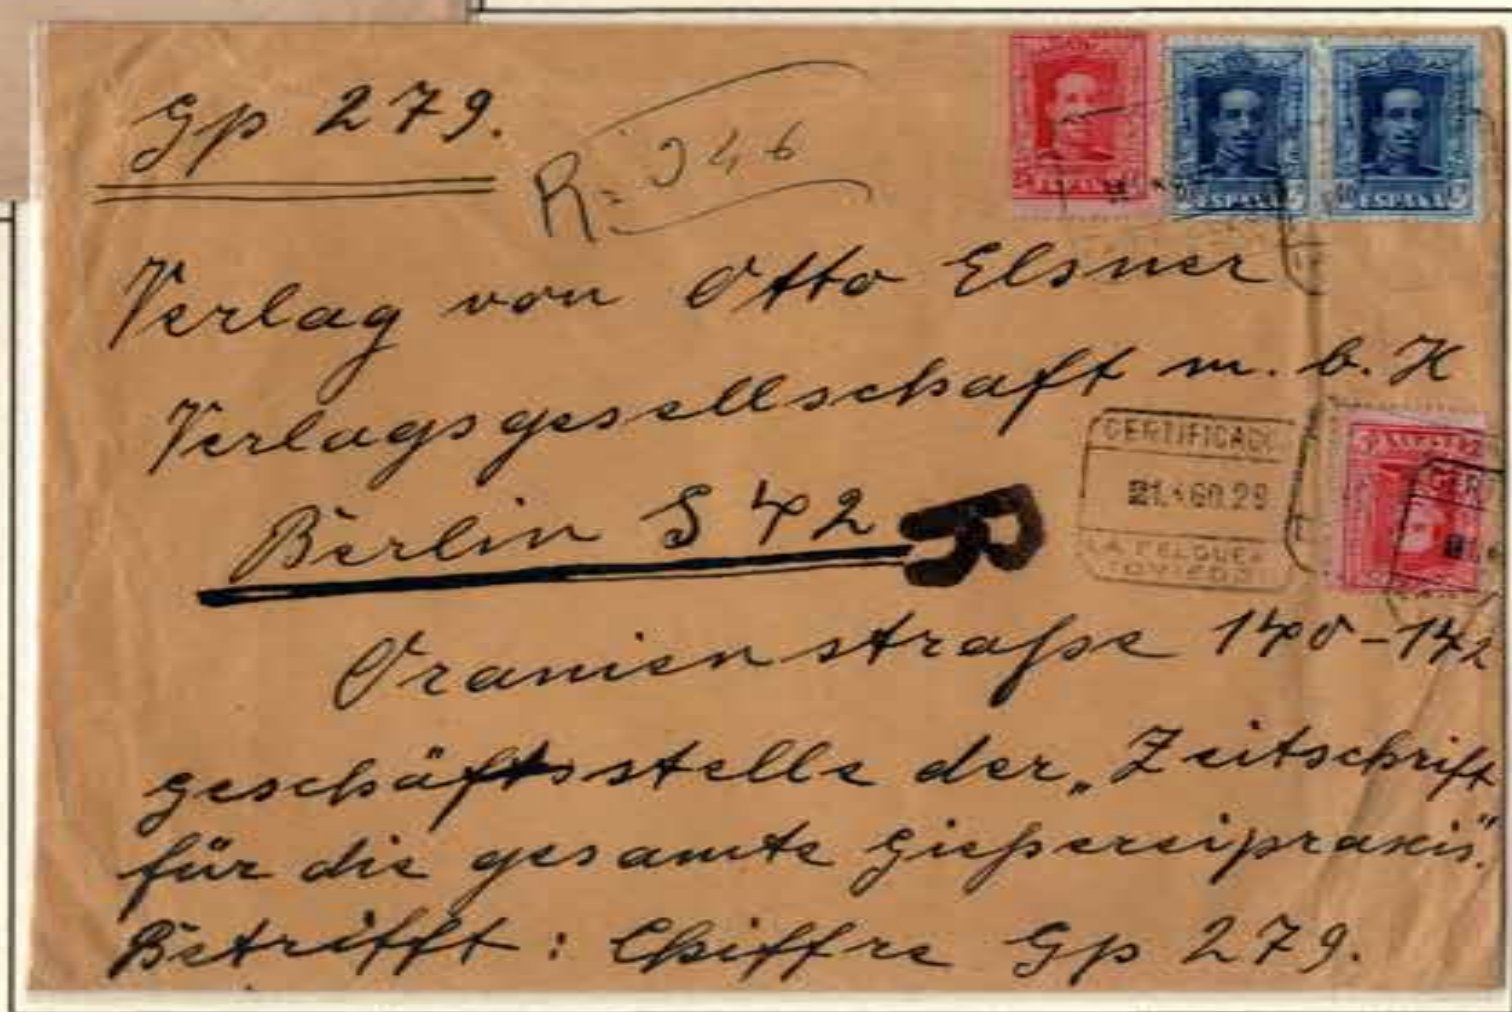 Gp 279.
R= 346
ESPAÑA ESPAÑA
Verlag von Otto Elsner
Verlagsgesellschaft m. b. H
Berlin S 42
R
CERTIFICADO
LA FELGUERA
(OVIEDO)
Oranienstraße 140-142
geschäftsstelle der „Zeitschrift
für die gesamte giefsereipraxis".
Betrifft: Chiffre Gp 279.